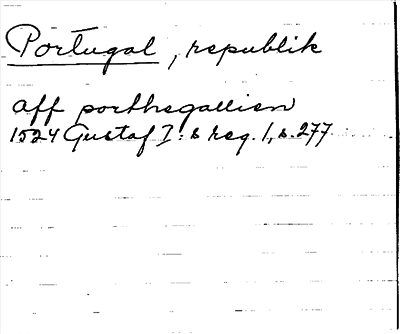 Portugal, republik
aff porthegallien
1524 Gustaf I:s reg. 1, s. 277